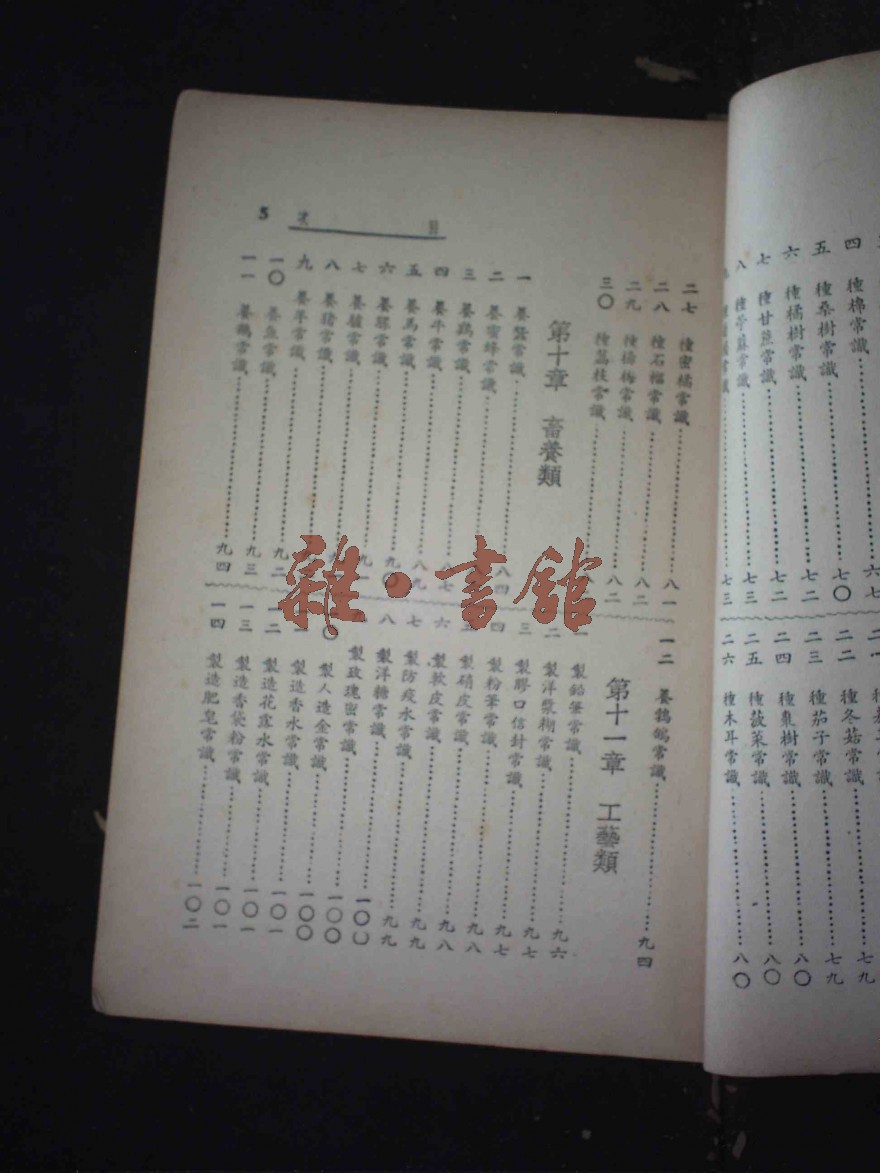 種棉常識……六七
種桑樹常識……七〇
六 種橘樹常識……七二
七 種甘蔗常識……七二
八 種苧蔴常識……七三
種冬菇常識……七九
二三 種茄子常識……七九
二四 種棗樹常識……八〇
二五 種菠菜常識……八〇
二六 種木耳常識……八〇
目 次 5
二七 種蜜橘常識……八一
二八 種石榴常識……八二
二九 種楊梅常識……八二
三〇 種荔枝常識
第十章 畜養類
一 養蠶常識
二 養蜜蜂常識……八四
三 養鷄常識……八七
四 養牛常識
五 養馬常識
六 養騾常識……九〇
七 養驢常識
八 養猪常識
九 養羊常識……九二
一〇 養魚常識……九三
一一 養鵝常識……九四
一二 養鵓鴿常識……九四
第十一章 工藝類
一 製鉛筆常識……九六
二 製洋漿糊常識……九七
三 製膠口信封常識……九七
四 製粉筆常識……九八
五 製硝皮常識……九八
六 製軟皮常識……九九
七 製防疫水常識……九九
八 製洋糖常識
製玫瑰蜜常識……一〇〇
製人造金常識……一〇〇
製造香水常識……一〇〇
一二 製造花露水常識……一〇一
一三 製造香袋粉常識……一〇一
一四 製造肥皂常識……一〇二
雜·書館